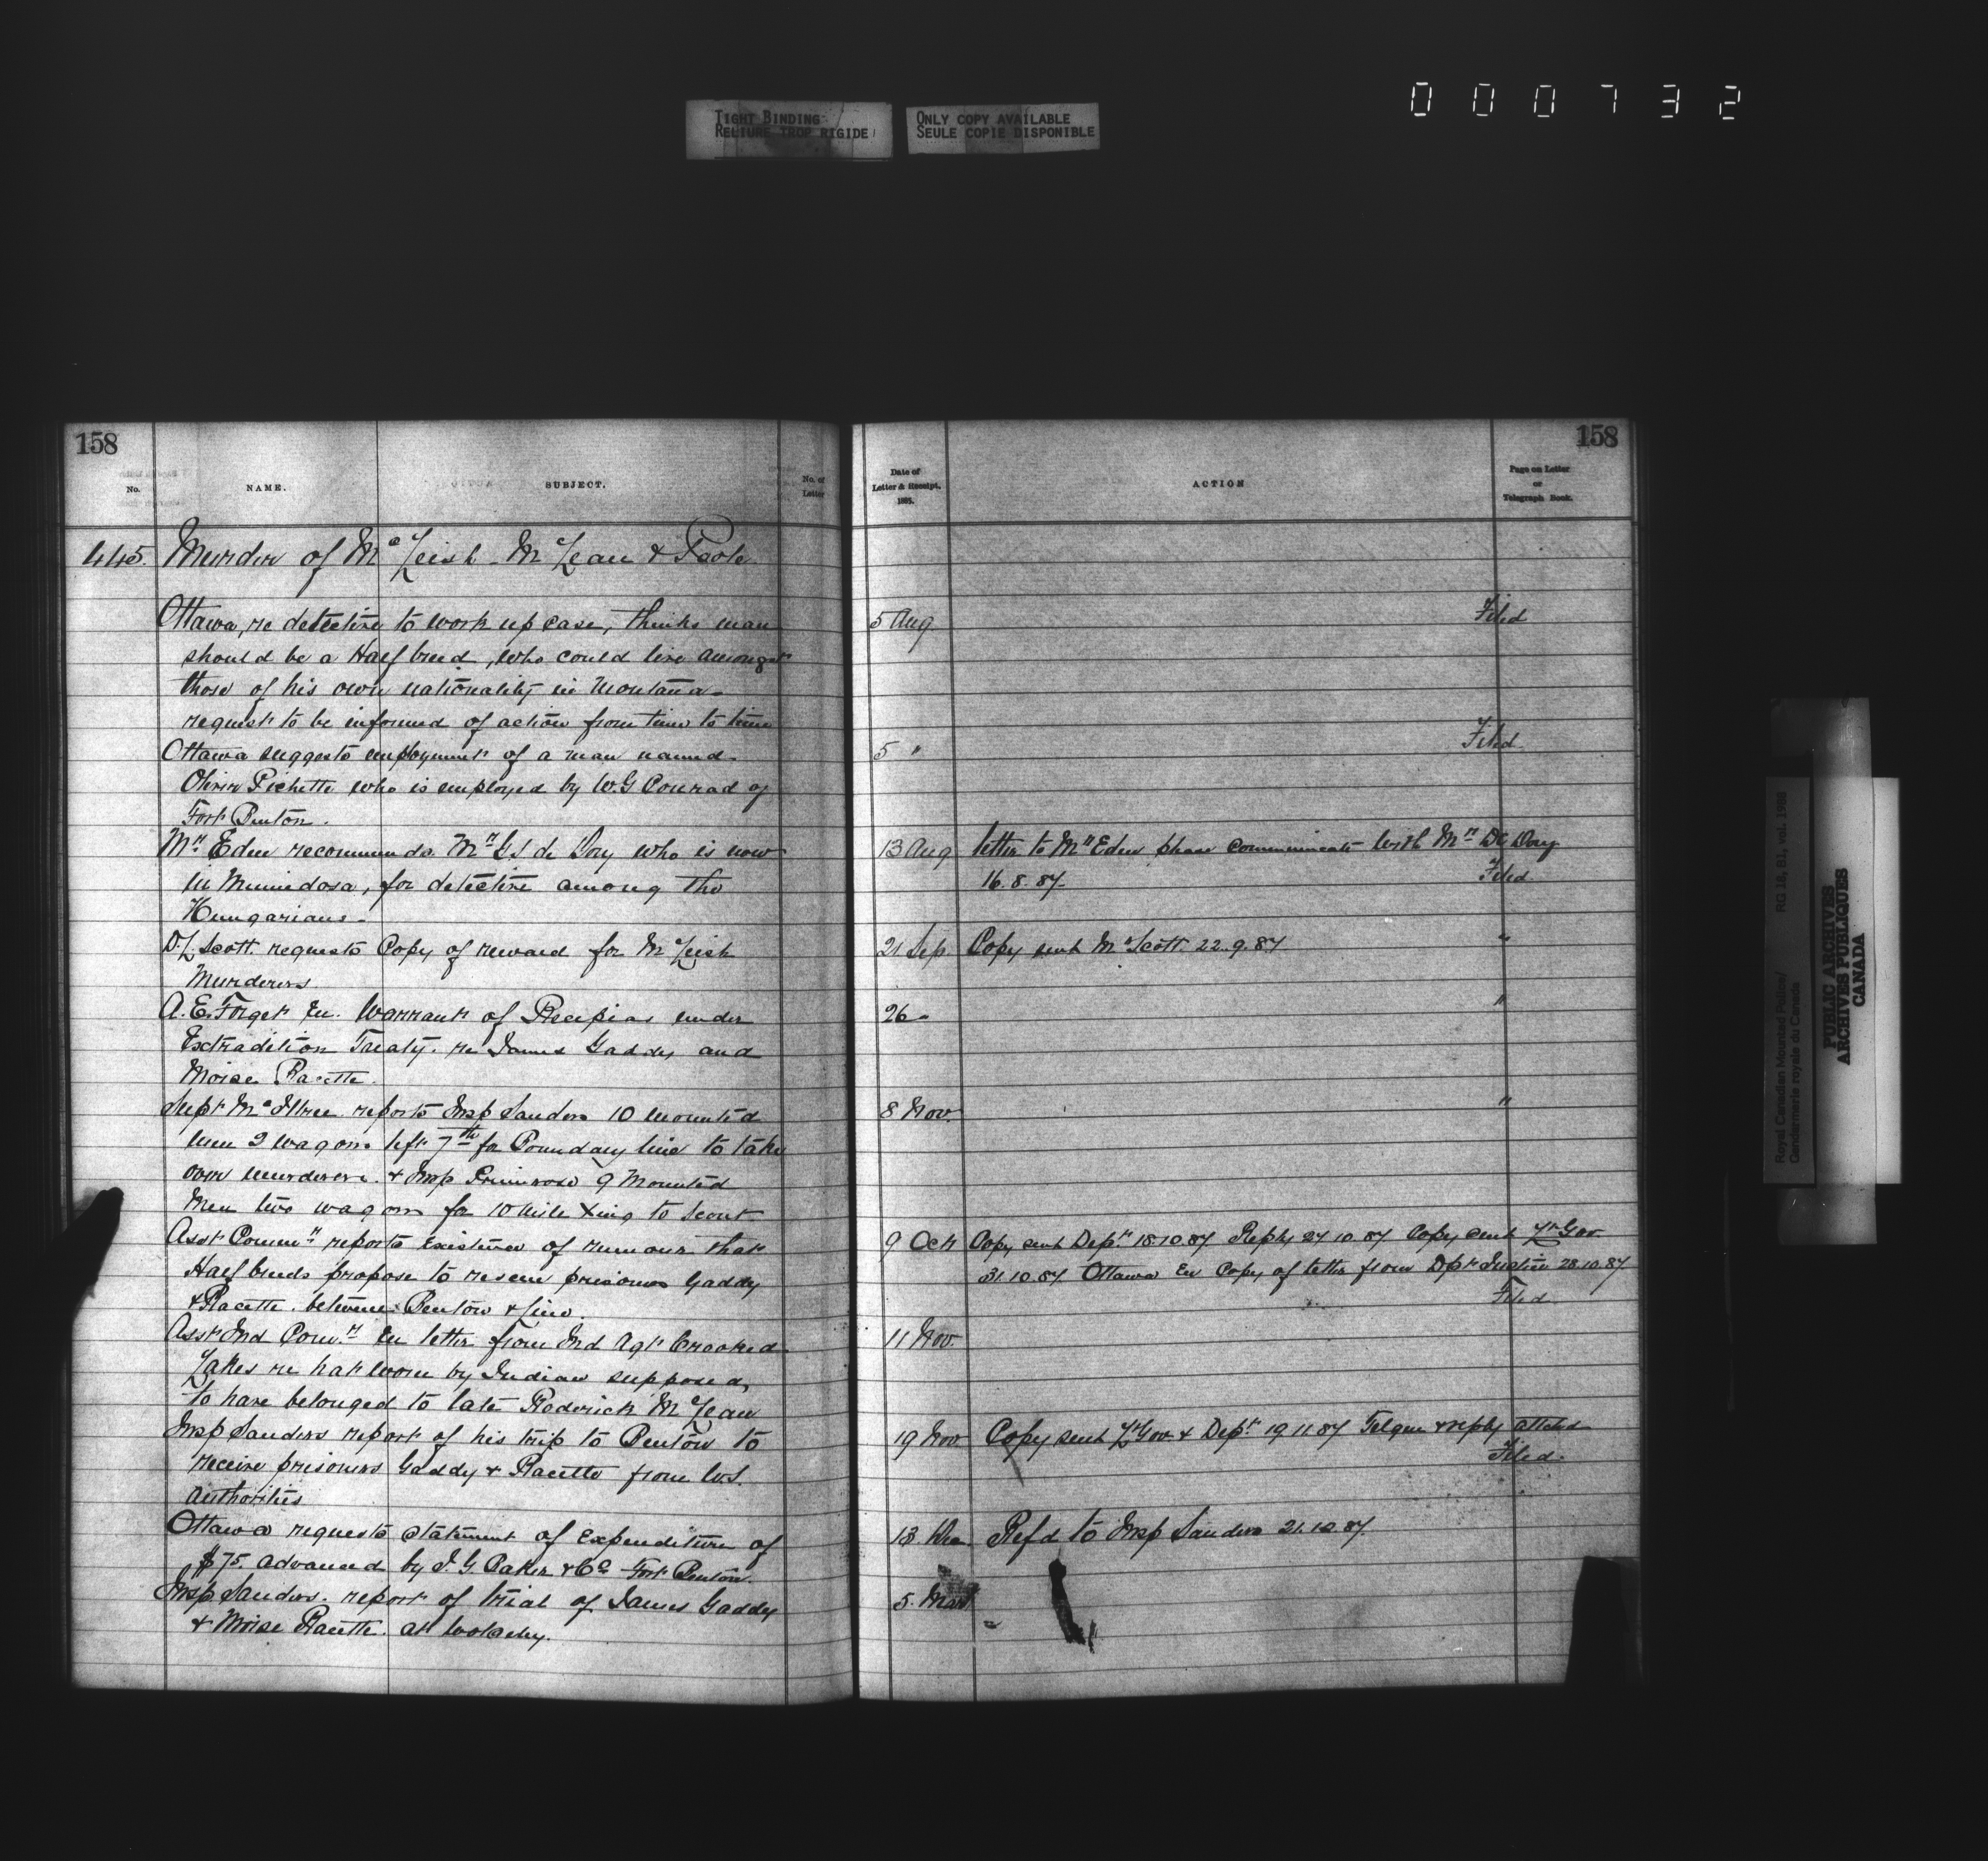 000732
TIGHT BINDING
RELIURE TROP RIGIDE
ONLY COPY AVAILABLE
SEULE COPIE DISPONIBLE
158
No.
NAME.
SUBJECT.
No. of
Letter
445. Murder of McLeish - McLean & Poole
Ottawa, re detective to work up case, thinks man
should be a Half breed, who could live amongst
those of his own nationality in Montana -
request to be informed of action from time to time
Ottawa suggests employment of a man named
Olivier Pichette who is employed by W.G Conrad of
Fort Benton.
Mr. Eden recommends Mr. G de Dory who is now
in Minnedosa, for detective among the
Hungarians -
D.L. Scott. requests Copy of reward for McLeish
Murderers
A.E. Forget En. Warrant of Recipias under
Extradition Treaty. re James Gaddy and
Moise Racette.
Supt McIllree reports Insp Sanders 10 mounted
men 2 wagons left 7th for Boundary line to take
over murderers. & Insp Primrose 9 Mounted
Men two wagons for 10 Mile Xing to Scout
Asst Commr reports existence of rumour that
Half breeds propose to rescue prisoners Gaddy
& Racette. between Benton & Line.
Asst Ind Comr. En letter from Ind Agt Crooked
Lakes re hat worn by Indian supposed
to have belonged to late Roderick McLean
Insp Sanders report of his trip to Benton to
receive prisoners Gaddy & Racette from U.S.
Authorities
Ottawa requests statement of Expenditure of
$75. advanced by I.G. Baker & Co Fort Benton.
Insp Sanders. report of trial of James Gaddy
& Moise Racette. at Wolseley.
158
Date of
Letter & Receipt,
1885.
ACTION
Page on Letter
or
Telegraph Book.
5 Aug. Filed
5 " Filed.
13 Aug letter to Mr Eden please communicate with Mr De Dory
16. 8. 87. Filed.
21 Sep. Copy sent Mr Scott. 22. 9. 87 "
26 - "
8 Nov. "
9 Oct Copy sent Dept. 18.10.87 Reply 24 10. 87 Copy sent Lt Gov
31.10.87 Ottawa En Copy of letter from Dpt Justice 28.10.87
Filed
11 Nov.
19 Nov Copy sent Lt Gov & Dept. 19 11.87 Telgm & reply attchd
Filed.
13. Dec. Refd to Insp Sanders 21.12.87.
5. Mar
Royal Canadian Mounted Police/
Gendarmerie royale du Canada
RG 18, B1, vol. 1988
PUBLIC ARCHIVES
ARCHIVES PUBLIQUES
CANADA